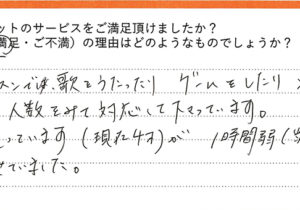 ットのサービスをご満足頂けましたか？
満足・ご不満）の理由はどのようなものでしょうか？
スンでは、歌をうたったり ゲームをしたり
人数をみて対応して下さっています。
っています（現在4才）が 1時間弱（
せていました。